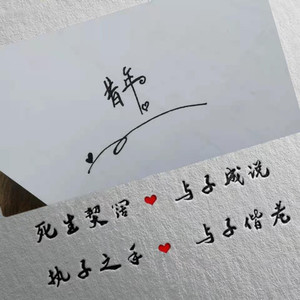 昔年
死生契阔 与子成说
执子之手 与子偕老